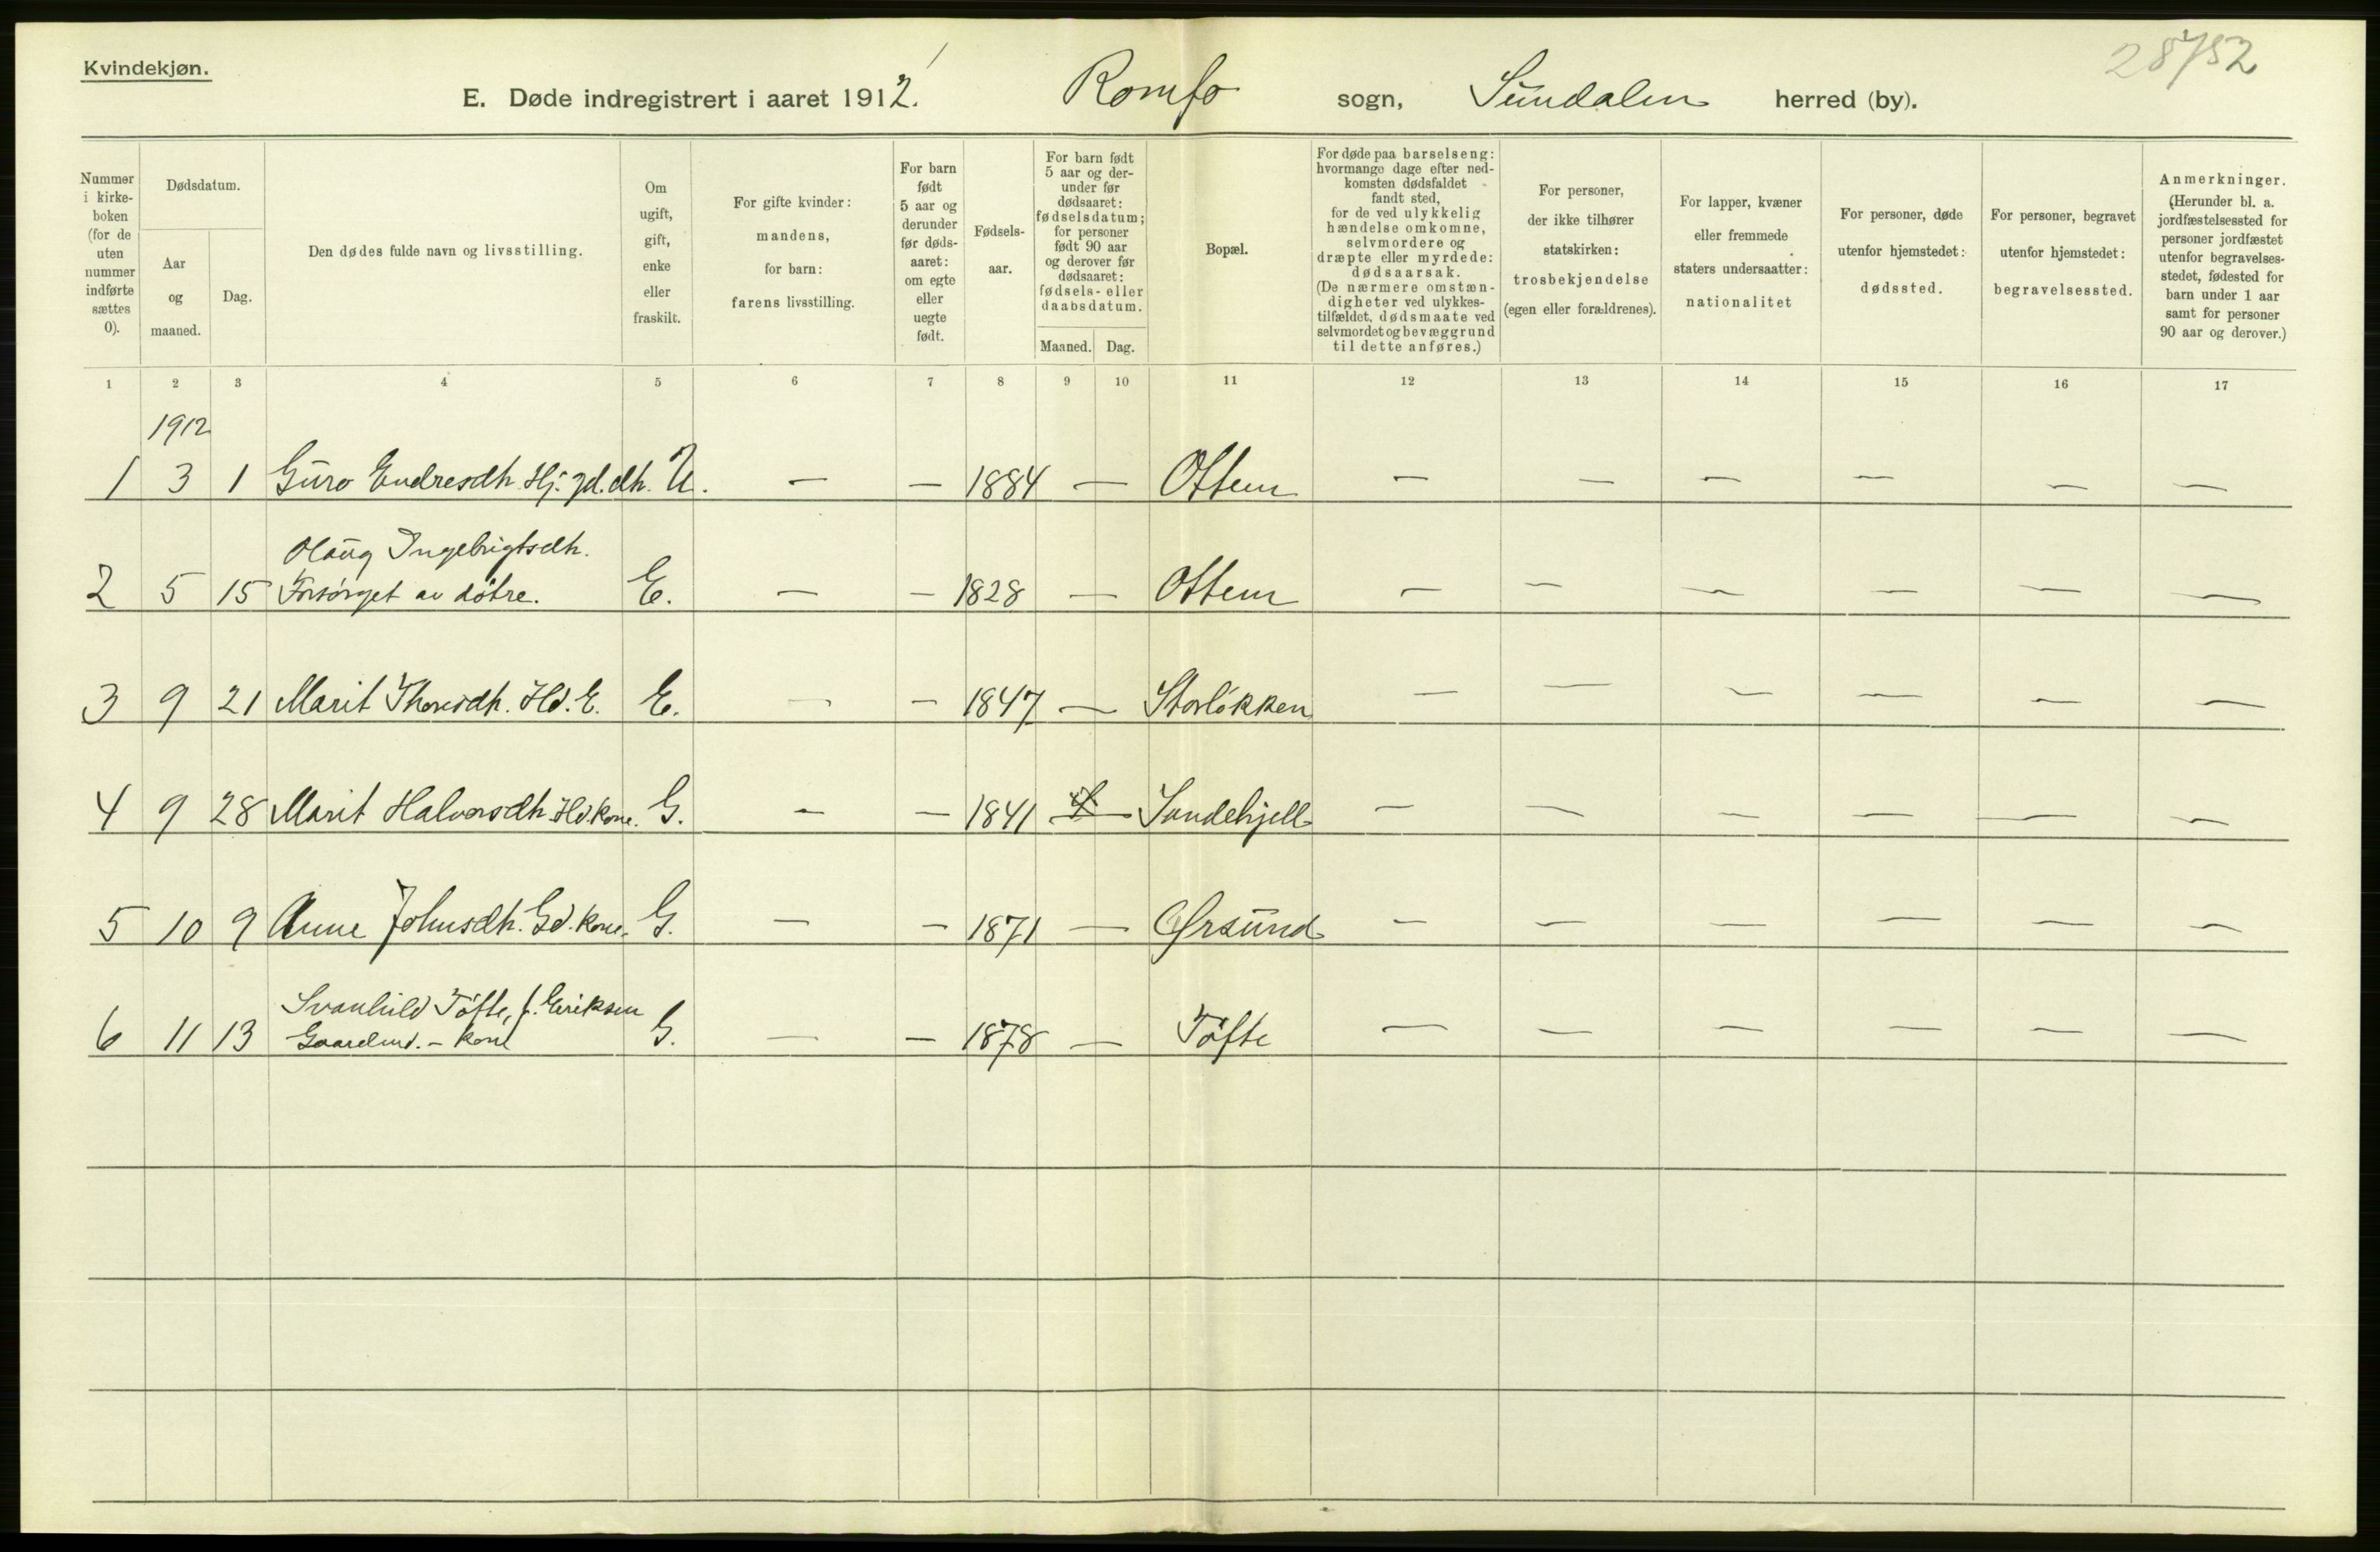 Kvindekjøn.
28752
E. Døde indregistrert i aaret 1912. Romfo sogn, Sundalen herred (by).
Nummer i kirke- boken (for de uten nummer indførte sættes 0).
Dødsdatum.
Aar og maaned.
Dag.
Den dødes fulde navn og livsstilling.
Om ugift, gift, enke eller fraskilt.
For gifte kvinder: mandens, for barn: farens livsstilling.
For barn født 5 aar og derunder før døds- aaret: om egte eller uegte født.
Fødsels- aar.
For barn født 5 aar og der- under før dødsaaret: fødselsdatum; for personer født 90 aar og derover før dødsaaret: fødsels- eller daabsdatum.
Maaned. Dag.
Bopæl.
For døde paa barselseng: hvormange dage efter ned- komsten dødsfaldet fandt sted, for de ved ulykkelig hændelse omkomne, selvmordere og dræpte eller myrdede: dødsaarsak. (De nærmere omstæn- digheter ved ulykkes- tilfældet, dødsmaate ved selvmordet og bevæggrund til dette anføres.)
For personer, der ikke tilhører statskirken: trosbekjendelse (egen eller forældrenes).
For lapper, kvæner eller fremmede staters undersaatter: nationalitet
For personer, døde utenfor hjemstedet: dødssted.
For personer, begravet utenfor hjemstedet: begravelsessted.
Anmerkninger. (Herunder bl. a. jordfæstelsessted for personer jordfæstet utenfor begravelses- stedet, fødested for barn under 1 aar samt for personer 90 aar og derover.)
1 2 3 4 5 6 7 8 9 10 11 12 13 14 15 16 17
1912
1 3 1 Guro Endresdh. Hj. gd. dh. U. — — 1884 — Ottem — — — — — —
Olaug Ingebrigtsdh.
2 5 15 Forsørget av døtre. E. — — 1828 — Ottem — — — — — —
3 9 21 Marit Thoresdh. Hd. E. E. — — 1847 — Storløkken — — — — — —
4 9 28 Marit Halvorsdh. Hd. kone. G. — — 1841 — Sandehjell — — — — — —
5 10 9 Anne Johnsdh. Gd. kone. G. — — 1871 — Ørsund — — — — — —
Svanhild Tøfte, f. Eriksen
6 11 13 Gaardmd. - kone G. — — 1878 — Tøfte — — — — — —